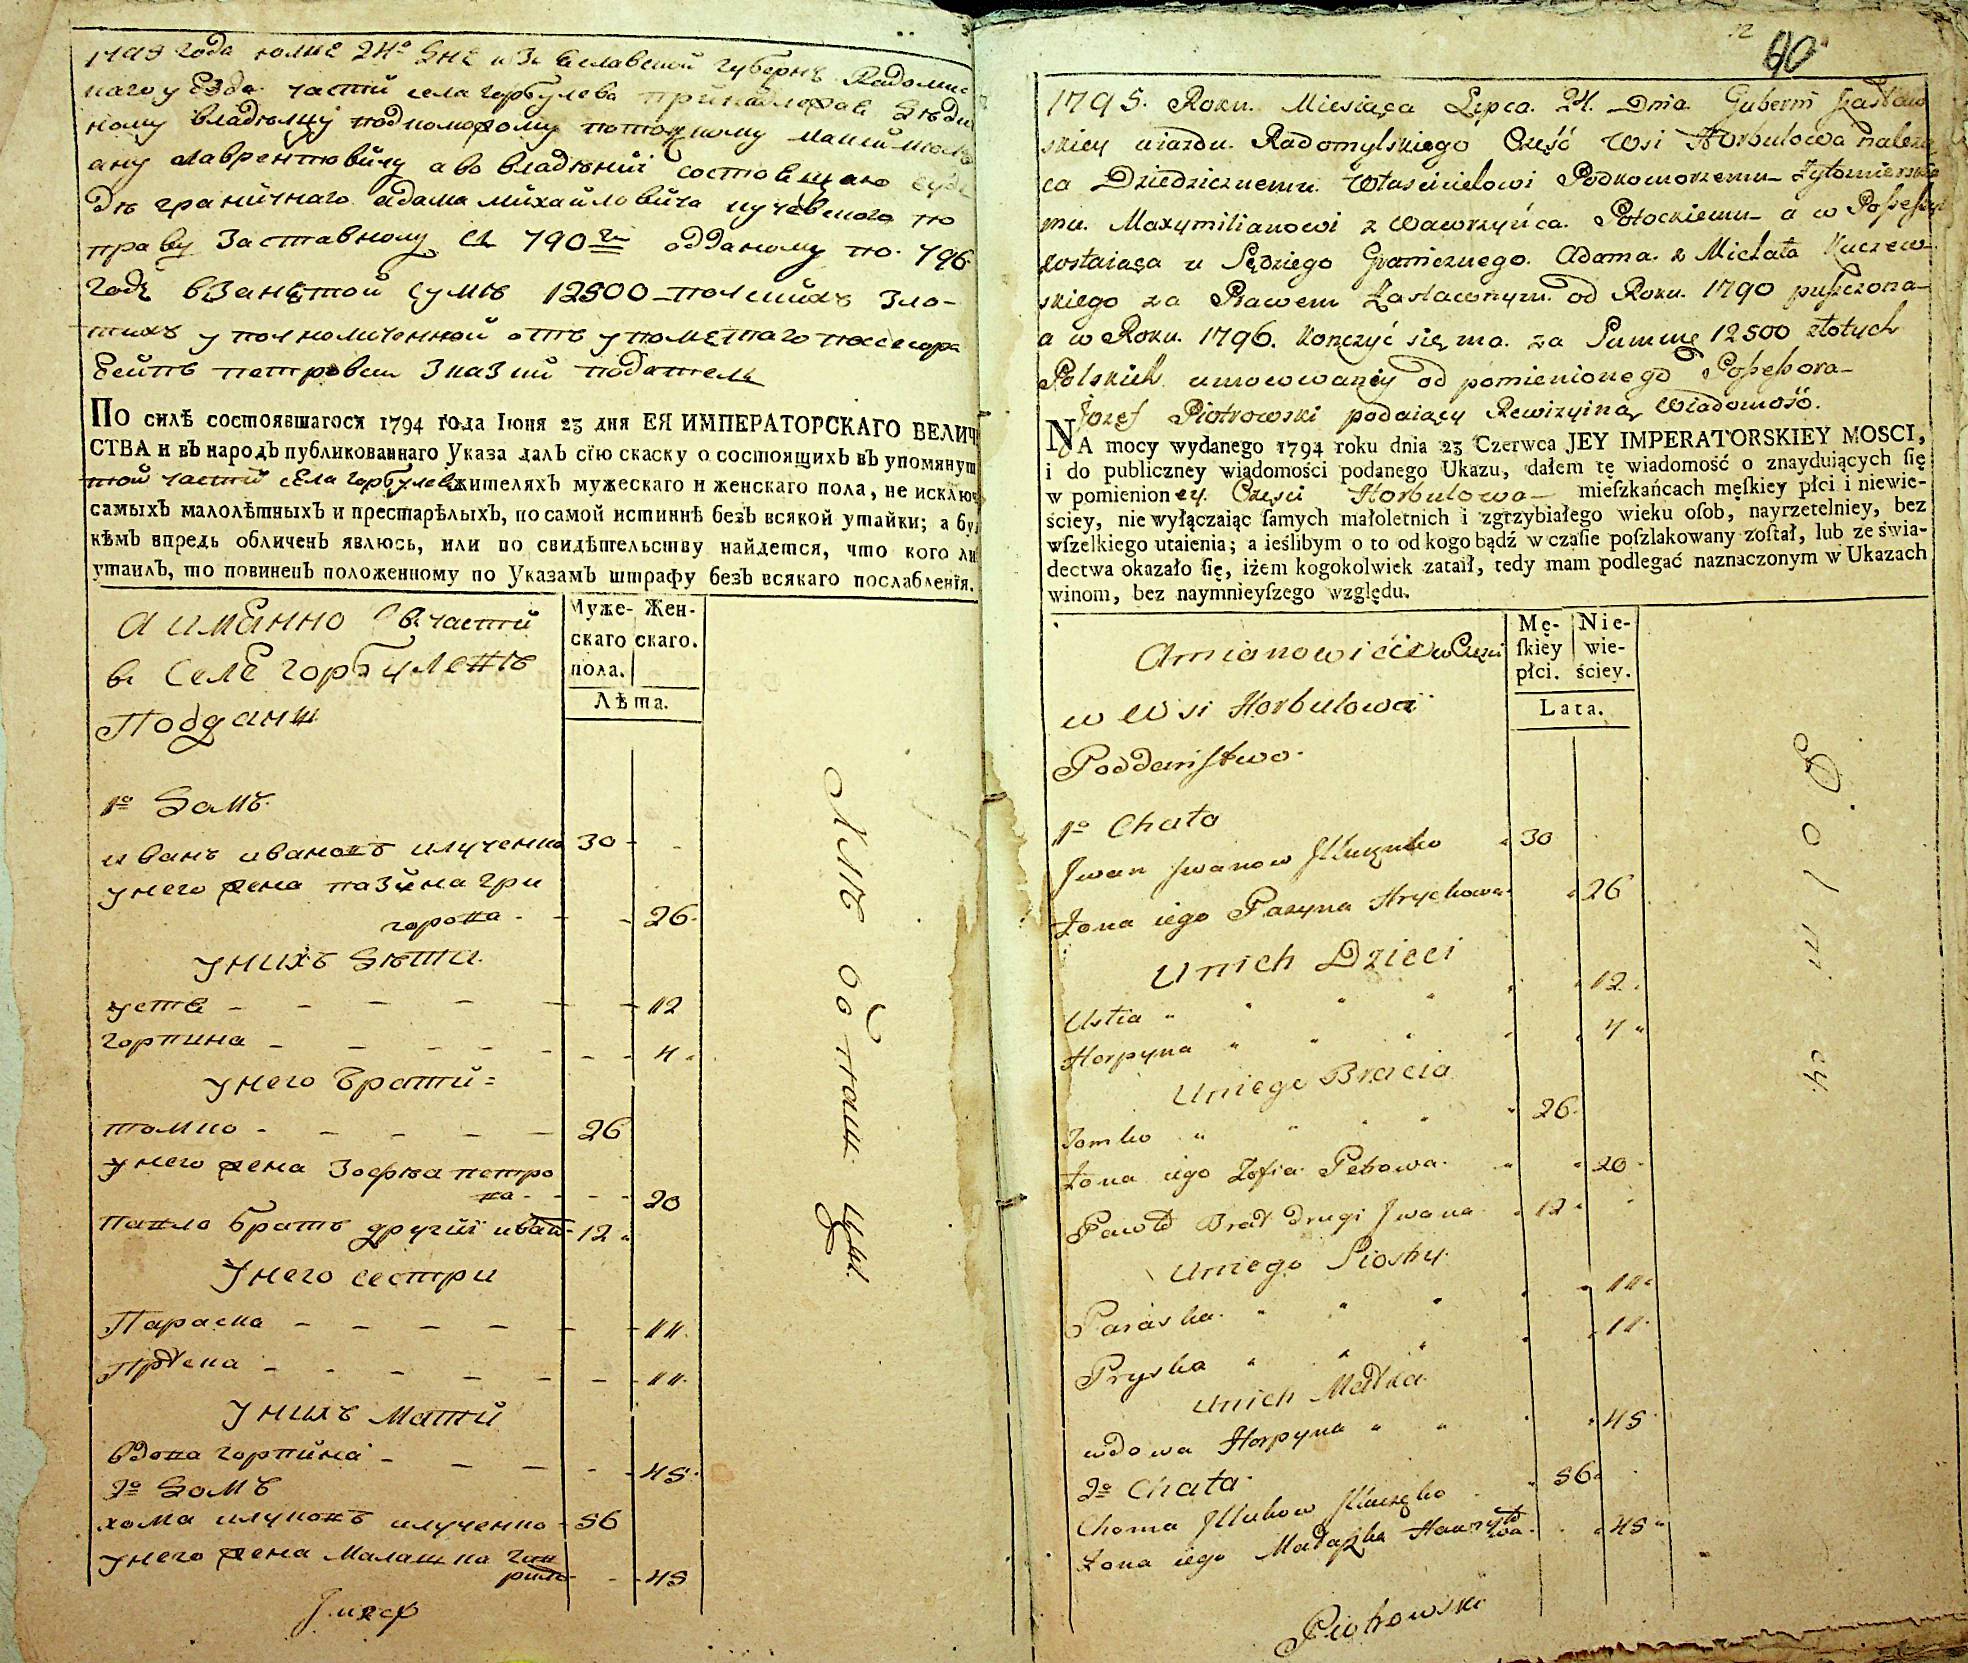 1795 года юлиѣ 24º днѣ изяславской губернѣ Радомис
наго уезда части села горбулева принадлежав дѣди
ному владѣлцу подкоморому потоцкому максимили
ану лаврентовичу а во владѣний состоящаю суде
дѣ граничнаго адама михайловича кучевскаго по
праву заставному съ 790го одданому по 796
годъ взанятой сумѣ 12500 полскихъ зло-
тихъ уполномоченной отъ упомянтаго посесора
петровски сказкий податель
По силѣ состоявшагося 1794 года Іюня 23 дня ЕЯ ИМПЕРАТОРСКАГО ВЕЛИЧ
СТВА и въ народъ публикованнаго Указа далъ сію скаску о состоящихъ въ упомянут
той части села горбулева жителяхъ мужескаго и женскаго пола, не исключ
самыхъ малолѣтныхъ и престарѣлыхъ, по самой истиннѣ безъ всякой утайки; а бу
кѣмъ впредь обличенъ явлюсь, или по свидѣтельству найдется, что кого ли
утаилъ, то повиненъ положенному по Указамъ штрафу безъ всякаго послабленія.
а имянно въ части
въ селѣ горбулевѣ
Подданы
Муже- Жен-
скаго скаго.
пола.
Лѣта.
1º домъ
иванъ ивановъ илученко 30
у него жена пазина гри
горова 26
у нихъ дѣти
устя 12
горпина 4
у него брати
томко 26
у него жена зофѣя петро
ва 20
павло братъ другий иван 12
У него сестри
Параска 11
Приска 11
У нихъ мати
вдова горпина 45
2º домъ
хома илуковъ илученко 56
у него жена малашка гав
рило 45
Юзеф
60
1795. Roku. Miesiąca Lipca. 24. Dnia. Guberni Zasław
skiey uiazdu. Radomylskiego Część Wsi Horbulowa należą
ca Dziedzicznemu. Właścicielowi Podkomorzemu Żytomiersk
mu. Maxymilianowi z Wawrzyńca. Potockiemu a w Possessyi
zostaiąca u Sędziego Granicznego. Adama. z Michała Kuczew-
skiego za Prawem Zastawnym. od Roku. 1790 puszczona
a w Roku. 1796. kończyć się ma. za Summę 12500 złotych
Polskich umocowany od pomienionego Possessora
Jozef Piotrowski podaiący Rewizyiną Wiadomość.
NA mocy wydanego 1794 roku dnia 23 Czerwca JEY IMPERATORSKIEY MOSCI,
i do publiczney wiadomości podanego Ukazu, dałem tę wiadomość o znayduiących ſię
w pomienioney. Części Horbulowa mieſzkańcach męſkiey płci i niewie-
ściey, nie wyłączaiąc ſamych małoletnich i zgrzybiałego wieku oſob, nayrzetelniey, bez
wſzelkiego utaienia; a ieślibym o to od kogo bądź w czaſie poſzlakowany zoſtał, lub ze świa-
dectwa okazało ſię, iżem kogokolwiek zataił, tedy mam podlegać naznaczonym w Ukazach
winom, bez naymnieyſzego względu.
Amianowicie w Części
w Wsi Horbulowa
Poddaństwo
Mę- Nie-
ſkiey wie-
płci. ściey.
Lata.
1º Chata
Jwan Jwanow Jłluczenko 30
Żona iego Pazyna Hrychowa 26
Unich Dzieci
Ustia 12
Horpyna 4
Uniego Bracia
Tomko 26
Żona iego Zofia Petrowa 20
Pawło Brat drugi Jwana 12
Uniego Siostry
Paraska 11
Pryska 11
Unich Matka
wdowa Horpyna 45
2º Chata
Choma Jłlukow Jłluczęko 56
Żona iego Małaszka Hawryło
wa 45
Piotrowski